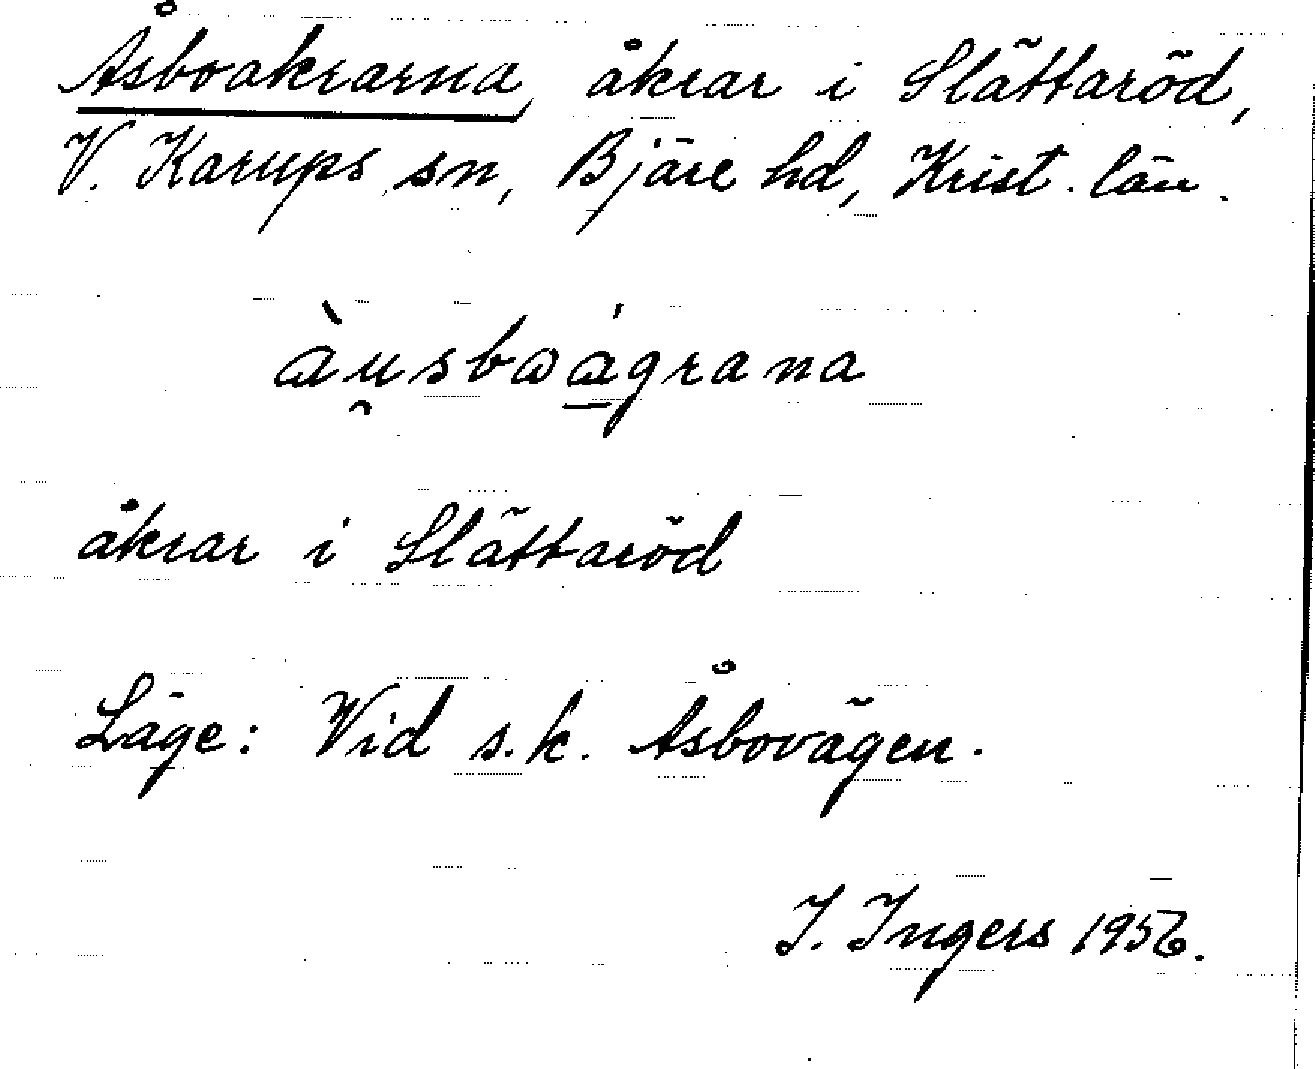 Åsboakrarna, åkrar i Slättaröd,
V. Karups sn, Bjäre hd, Krist. län.
àu̯sbɷágrana
åkrar i Slättaröd
Läge: Vid s.k. Åsbovägen.
I. Ingers 1956.